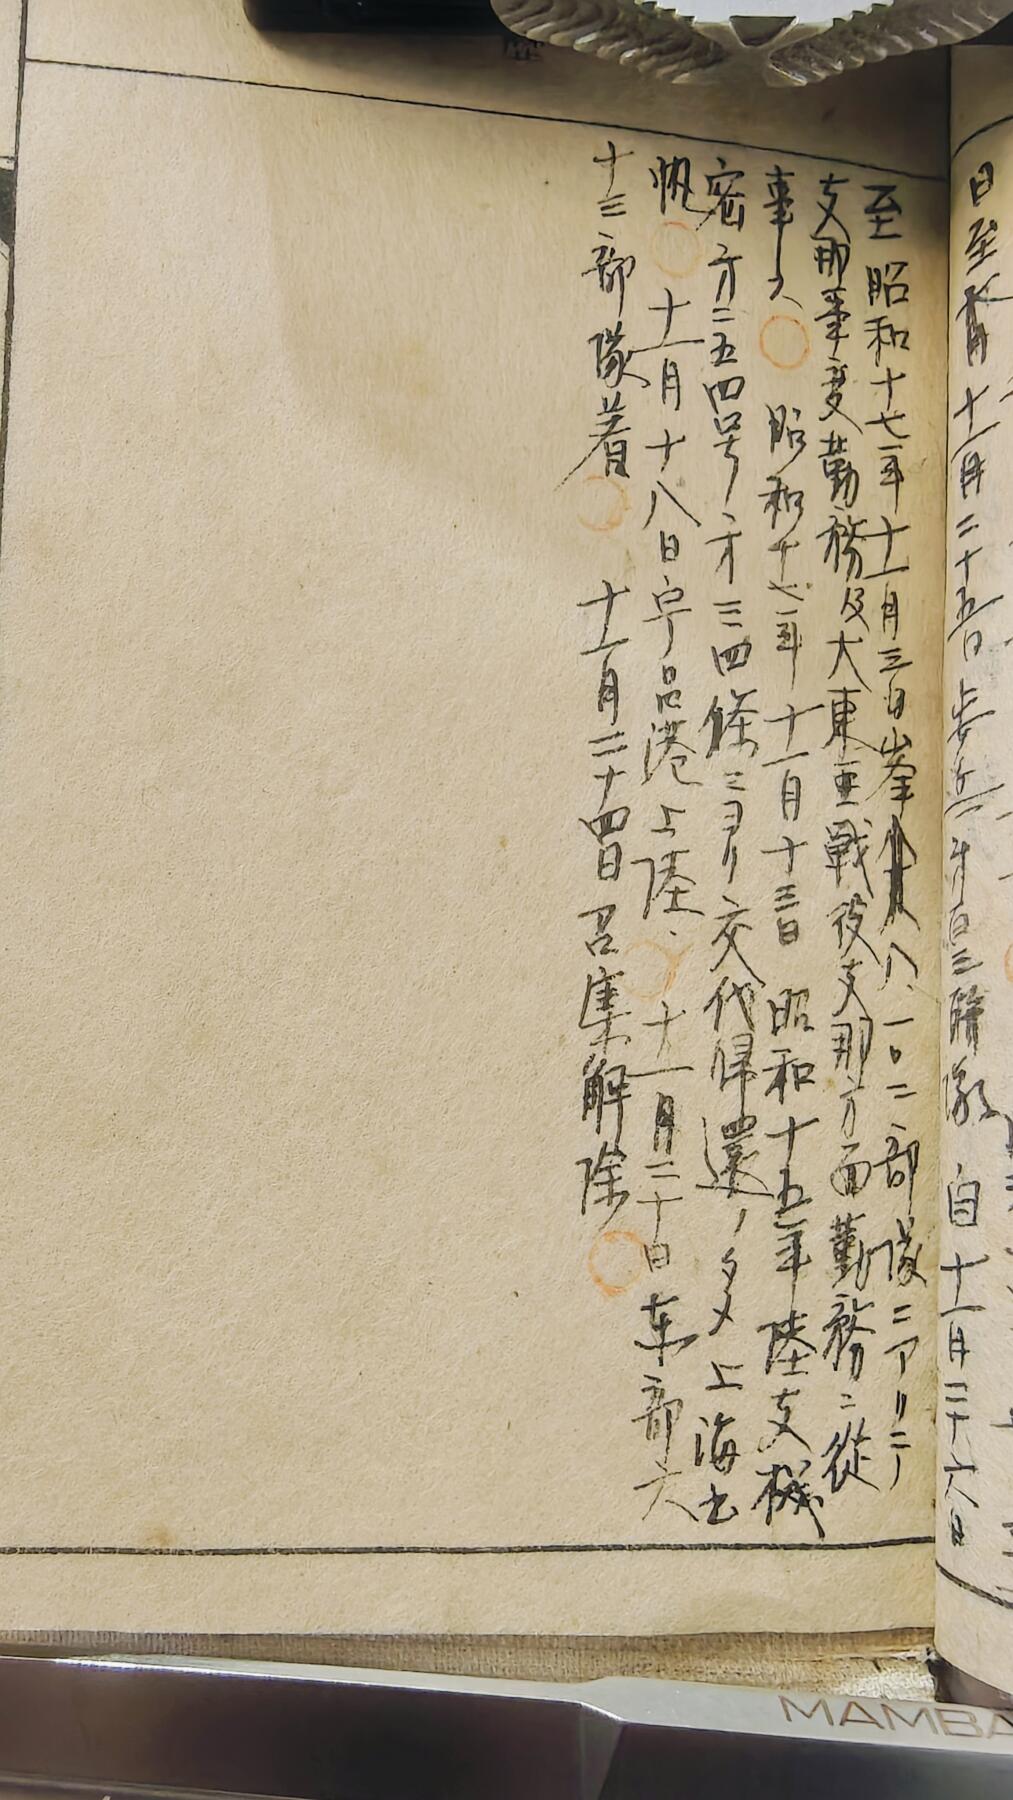 日至 十一月二十五日歩兵才百三聯隊 自十一月二十六日
至昭和十七年十一月三日峯 八一〇二部隊ニアリテ
支那事変勤務及大東亜戦役支那方面勤務ニ従
事ス 昭和十七年十一月十三日 昭和十五年陸支機
密才二五四号才三四條ニヨリ交代帰還ノタメ上海出
帆 十一月十八日宇品港上陸、十一月二十日東部六
十三部隊着 十一月二十四日召集解除
MAMBA